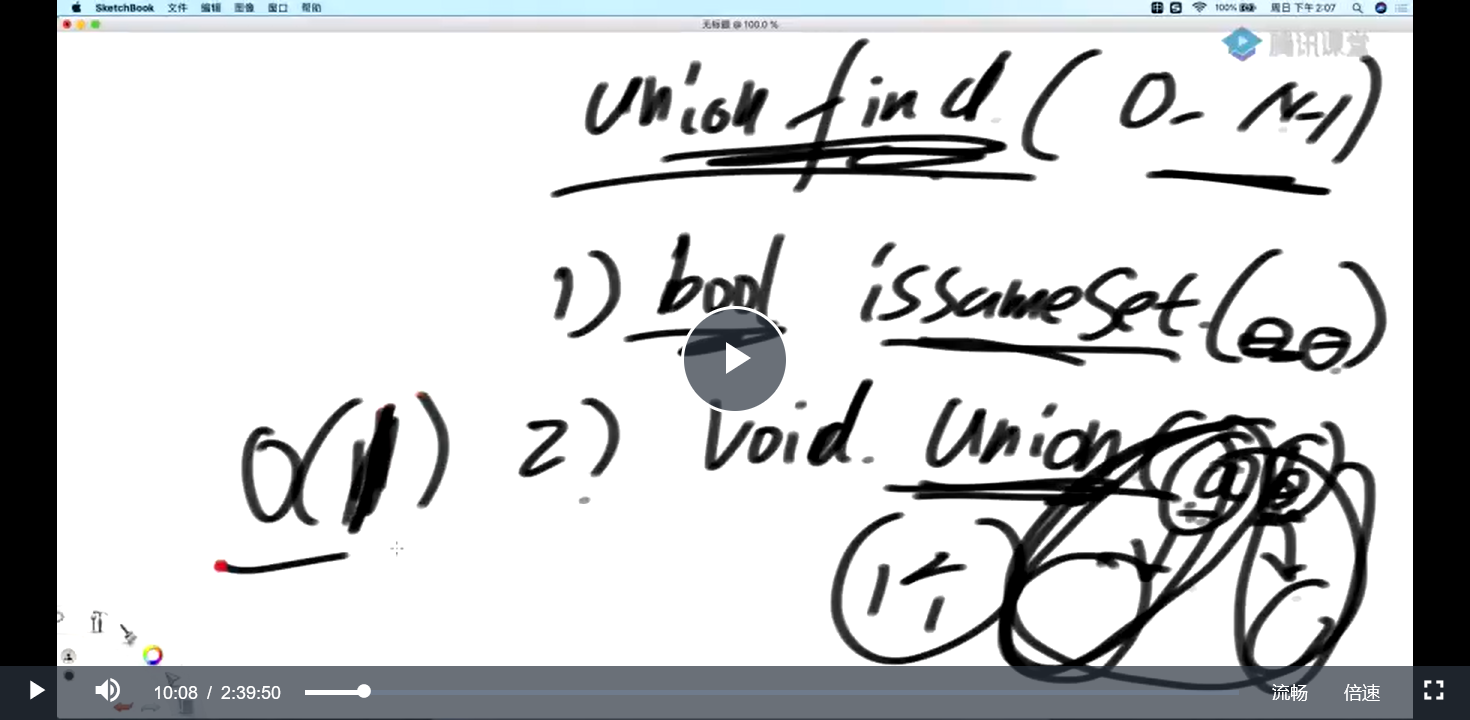 SketchBook 文件 编辑 图像 窗口 帮助 100% 周日 下午 2:07
无标题 @ 100.0 %
腾讯课堂
union find ( 0- N-1)
1) bool isSameSet (
O(1) 2) Void. Union ( a
10:08 / 2:39:50 流畅 倍速